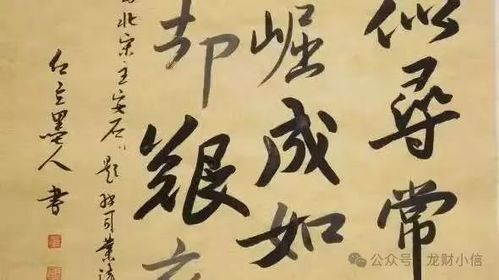 似尋常
崛成如
却艱
北宋王安石題张司業
墨人書
公众号·龙财小信